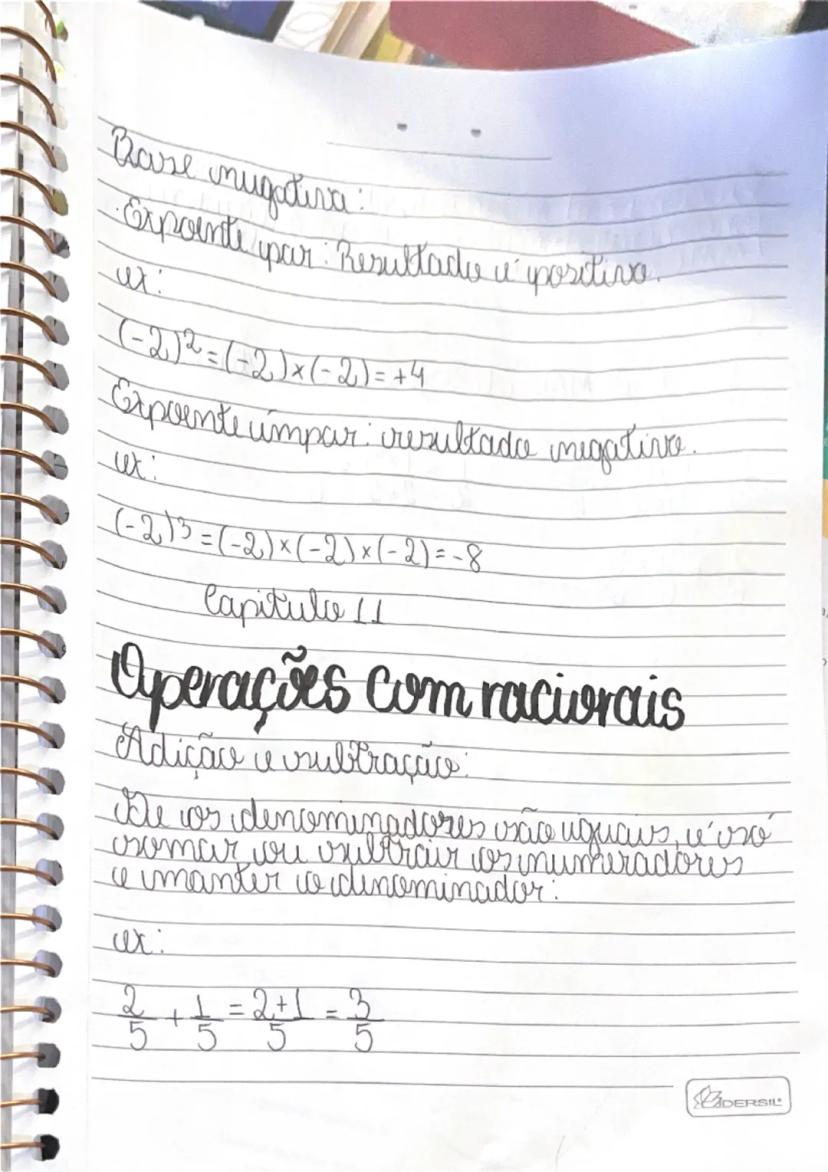 Base negativa:
· Expoente par: Resultado é positivo.
ex:
(-2)² = (-2) × (-2) = +4
Expoente ímpar: resultado negativo.
ex:
(-2)³ = (-2) × (-2) × (-2) = -8
Capitulo 11
Operações com racionais
Adição e subtração:
Se os denominadores são iguais, é só
somar ou subtrair os numeradores
e manter o denominador:
ex:
2/5 + 1/5 = 2+1/5 = 3/5